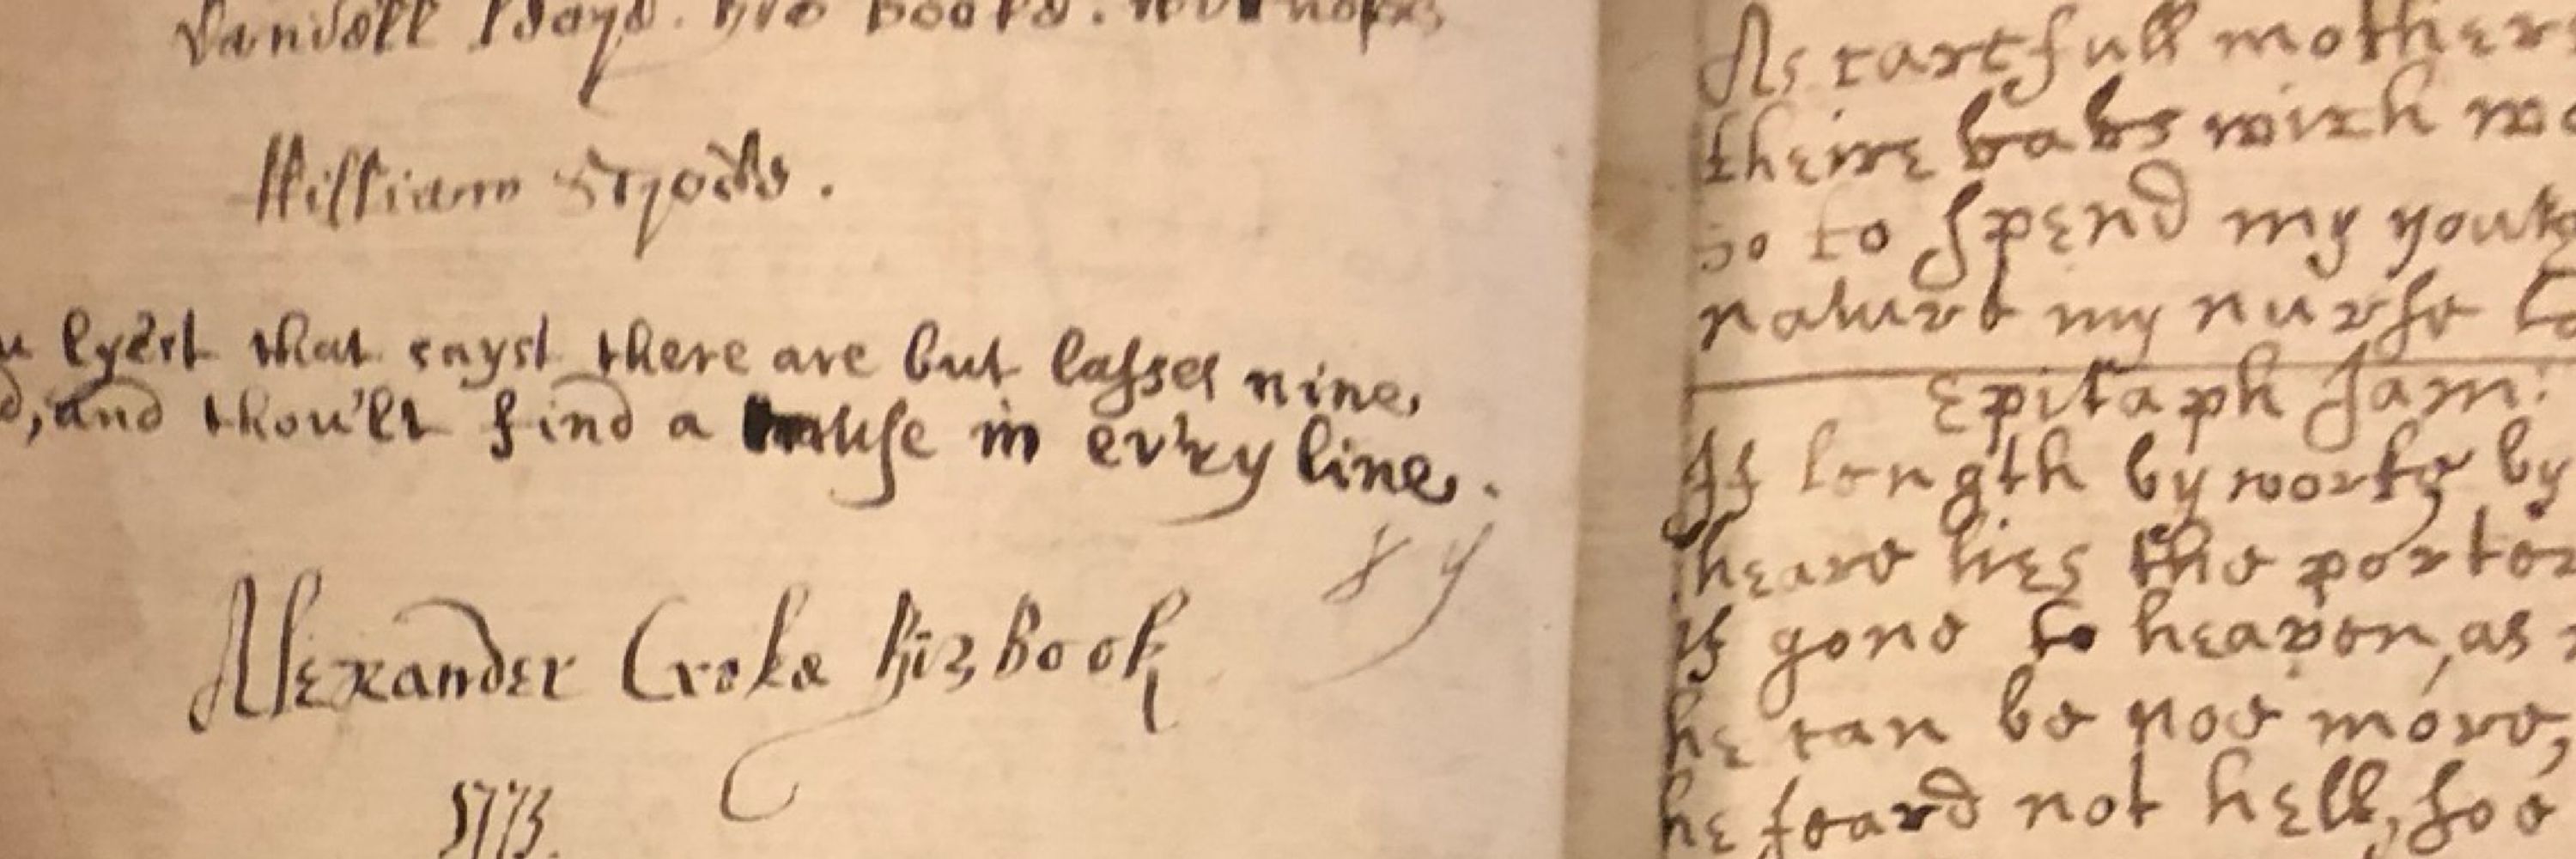 his booke.
William
lyest that sayst there are but lasses nine,
and thou'lt find a muse in ev'ry line.
Alexander Croke his Book
1773.
As carefull mothers
theire babs with
so to spend my
nature my nurse
Epitaph Jam:
If length by works by
heare lies the porter
If gone to heaven, as
he can be noe more,
he feard not hell, soe